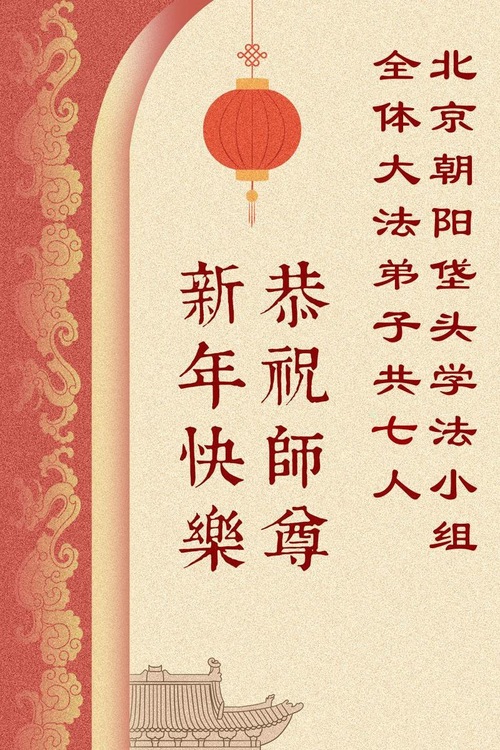 北京朝阳垡头学法小组
全体大法弟子共七人
恭祝師尊
新年快樂